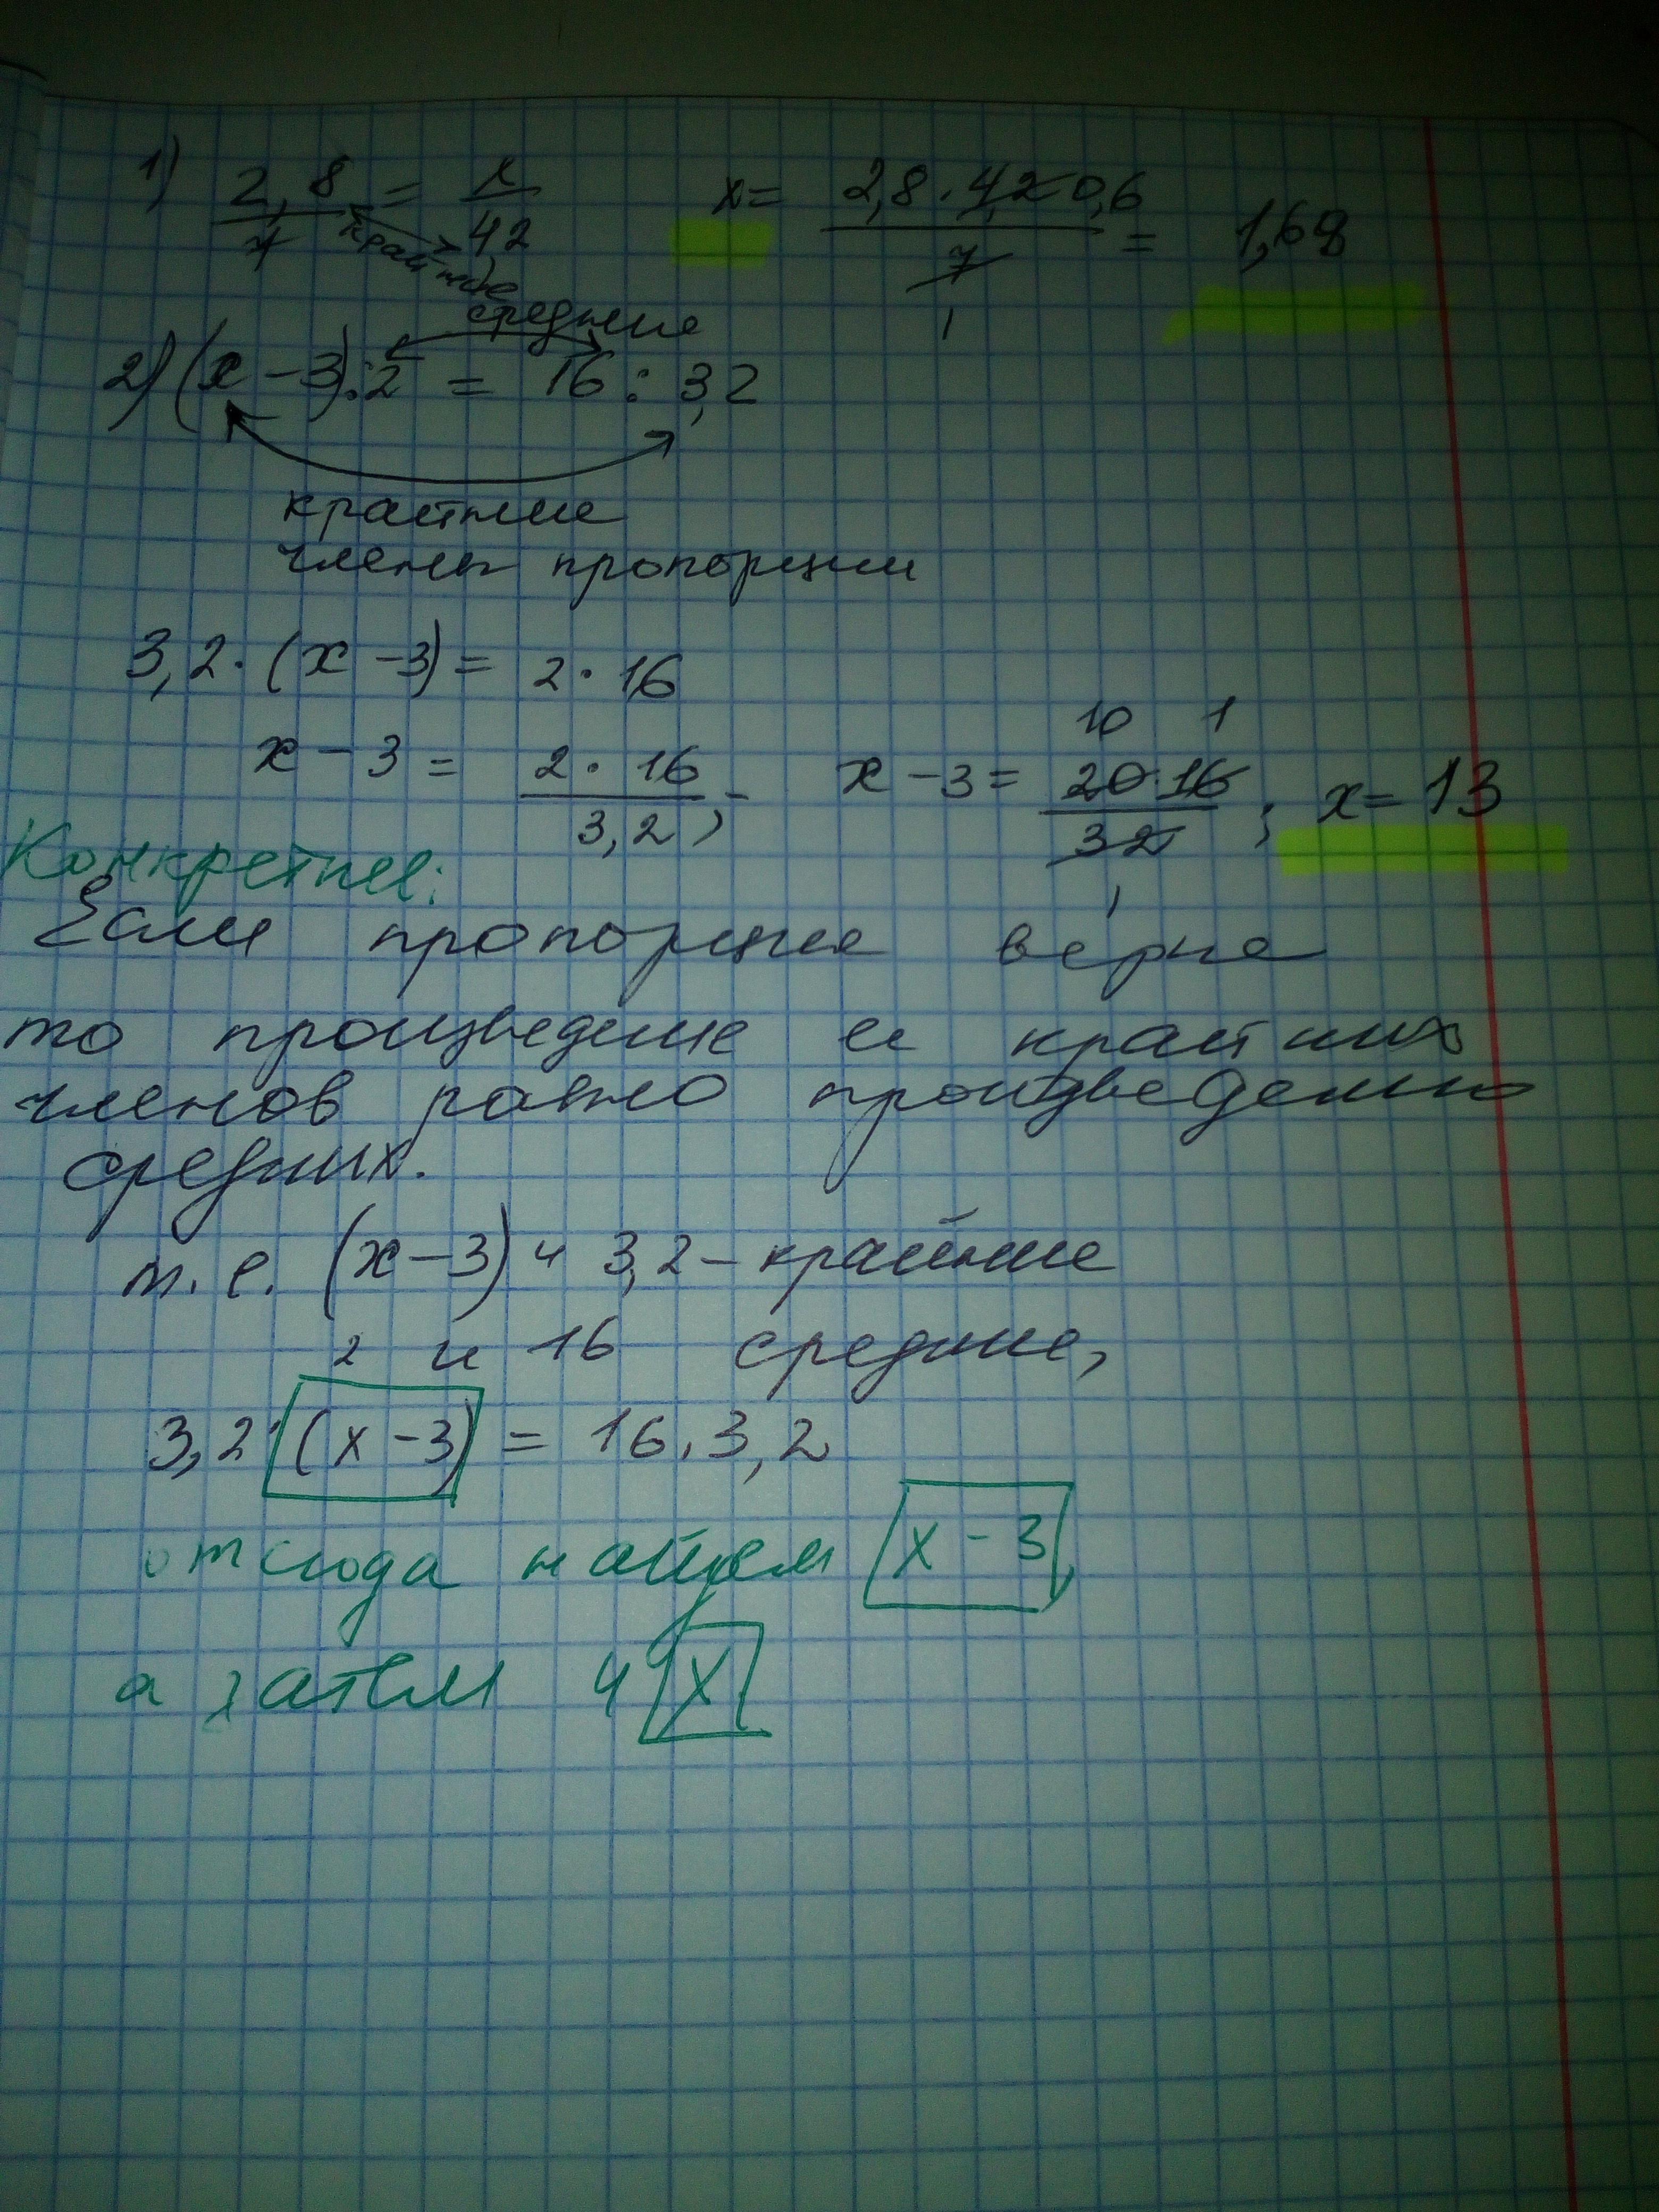 1) 2,8/7 = x/4,2 x = 2,8 · 4,2 0,6 / 7 1 = 1,68
крайние
средние
2) (x - 3) : 2 = 16 : 3,2
крайние
члены пропорции
3,2 · (x - 3) = 2 · 16
10 1
x - 3 = 2 · 16 / 3,2 ; x - 3 = 20 · 16 / 32 ; x = 13
1
Конкретнее:
Если пропорция верна
то произведение ее крайних
членов равно произведению
средних.
т.е. (x - 3) и 3,2 - крайние
2 и 16 средние,
3,2 · (x - 3) = 16 · 3,2
отсюда найдем x - 3
а затем и x